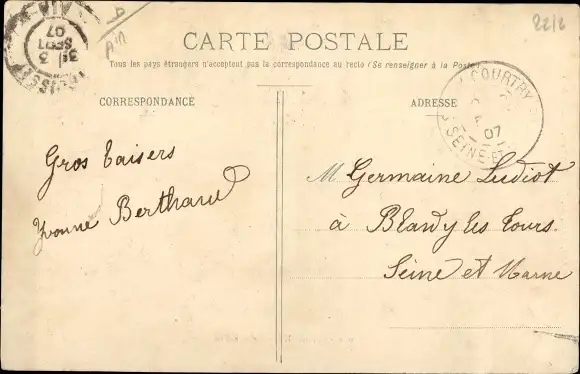 22/6
Ain
CARTE POSTALE
Tous les pays étrangers n'acceptent pas la correspondance au recto (Se renseigner à la Poste)
CORRESPONDANCE
ADRESSE
COURTRY
4
07
SEINE-ET
3E
3
SEPT
07
Gros baisers
Yvonne Berthaud
M Germaine Ludiot
à Blandy les tours
Seine et Marne